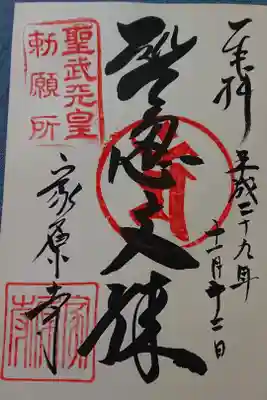 奉拝
平成二十九年
十一月十二日
智恵文殊
聖武天皇
勅願所
家原寺